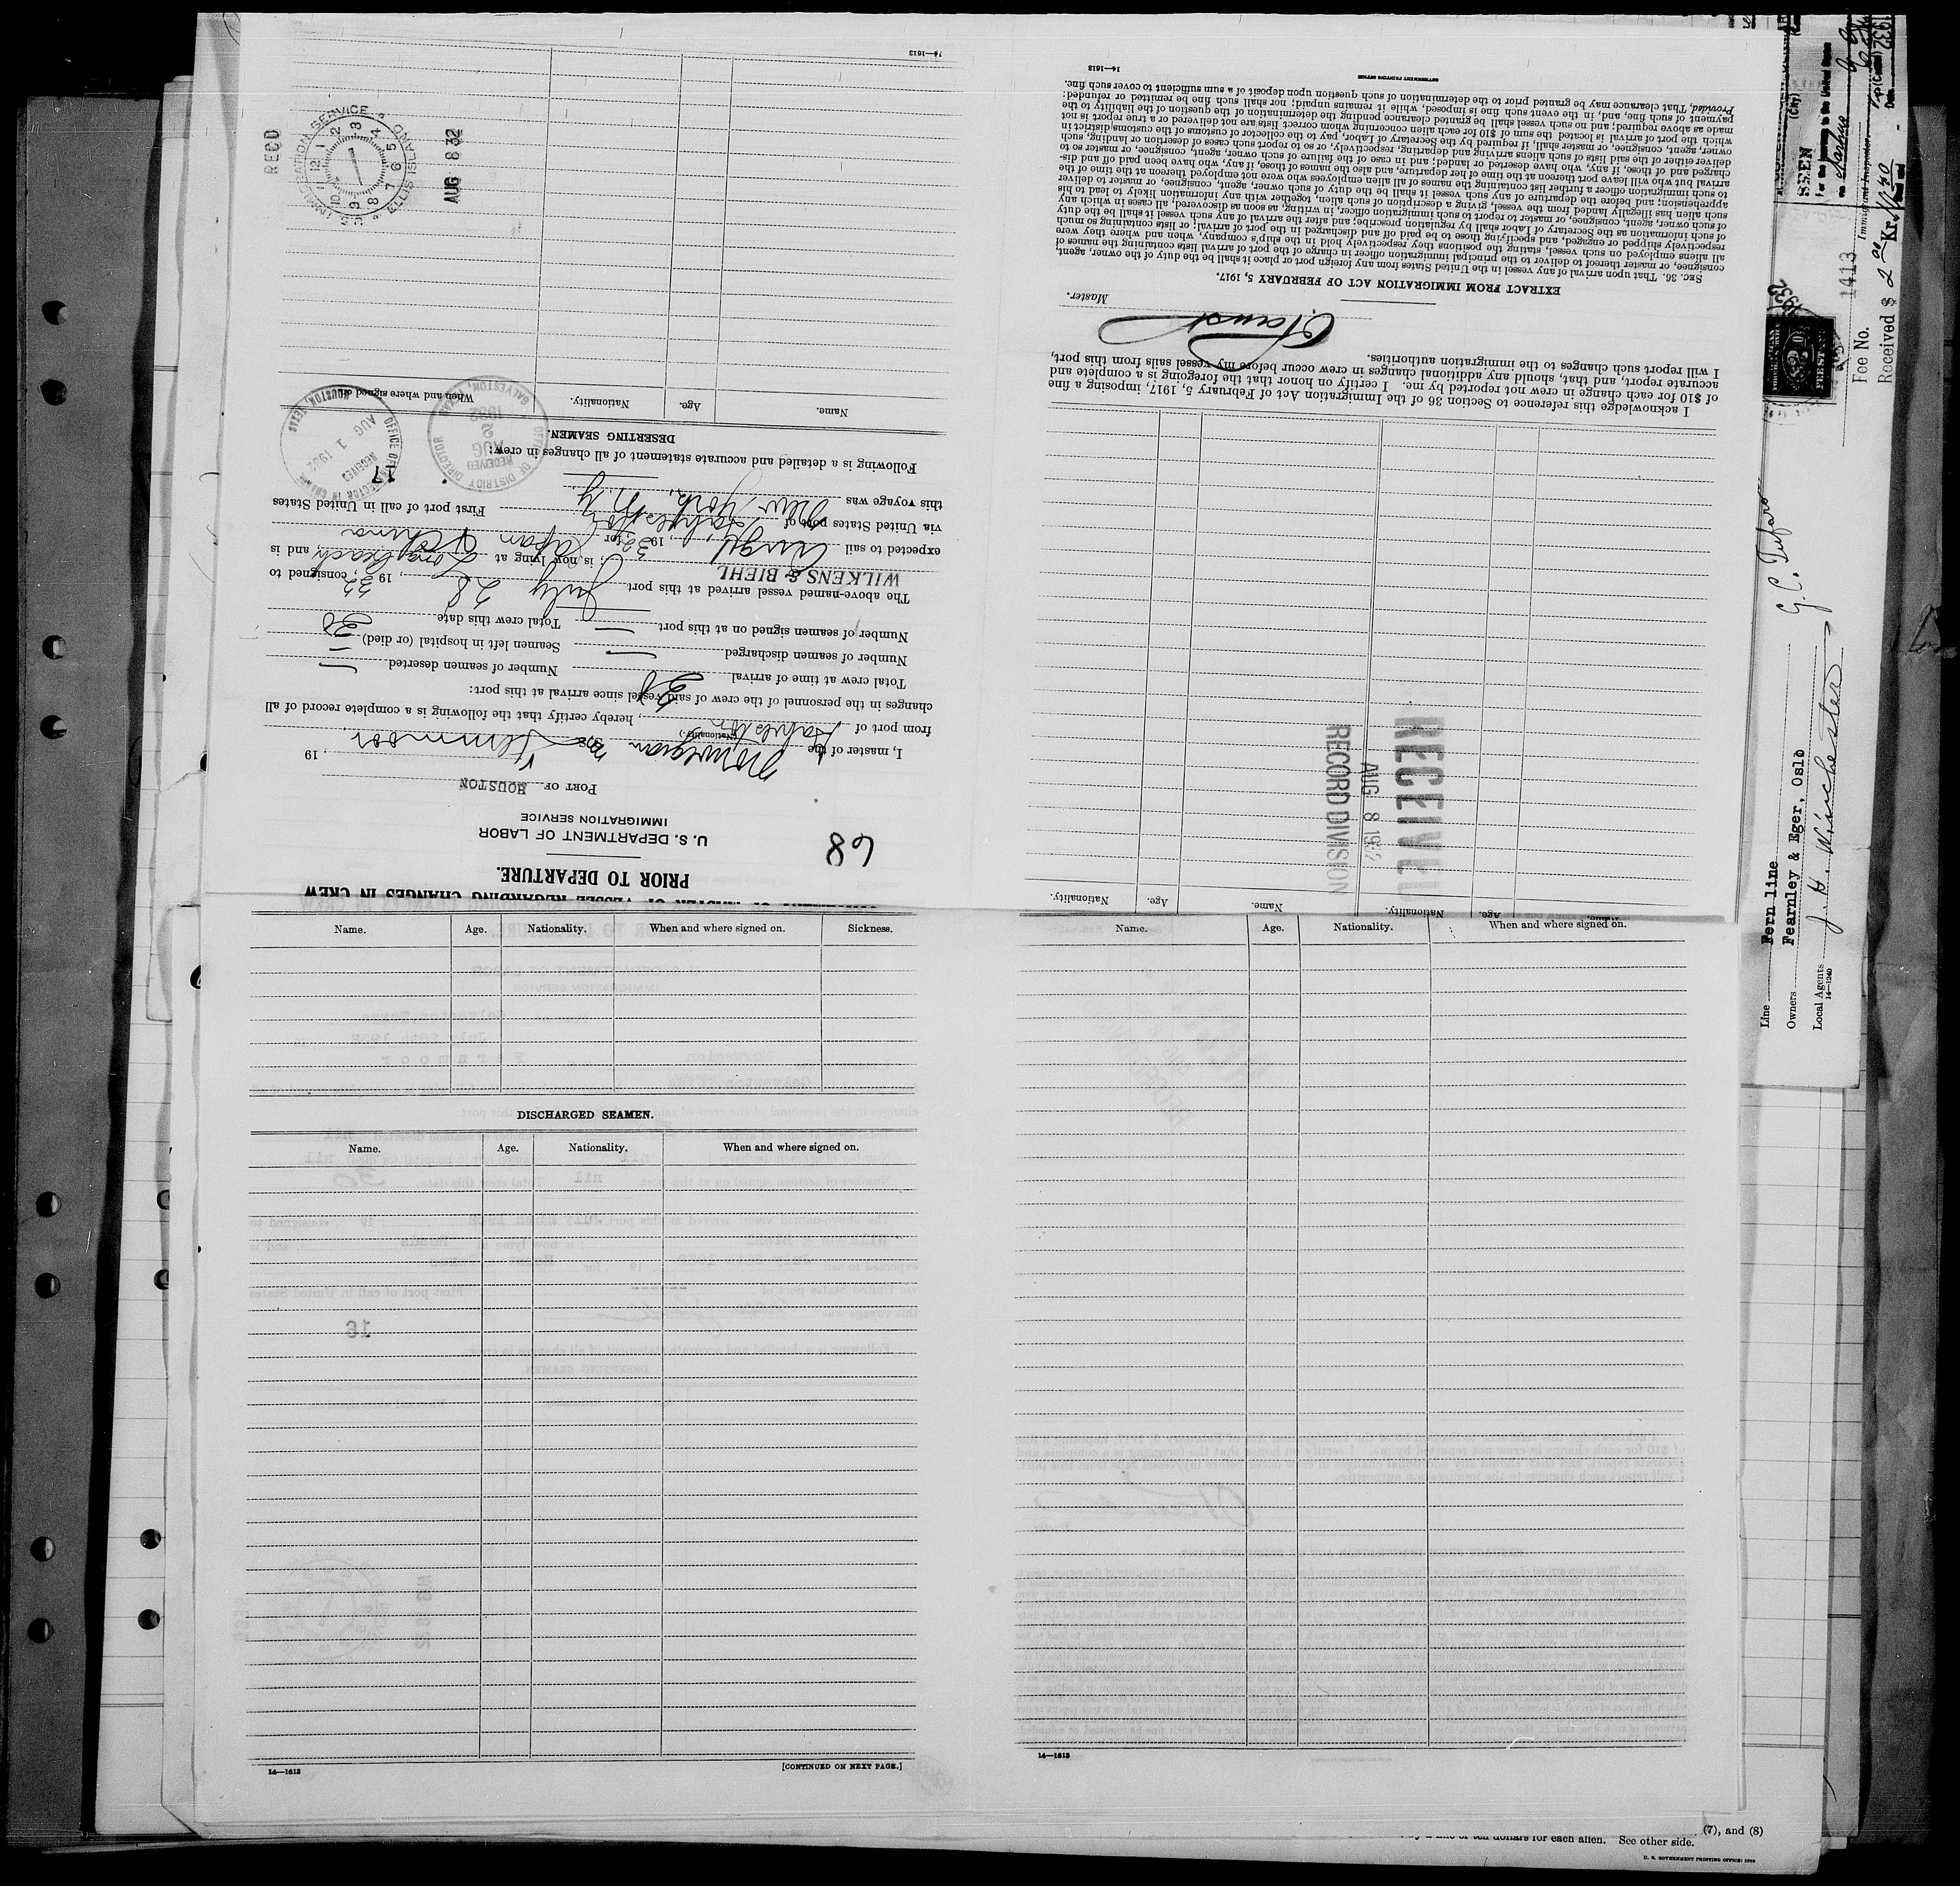 STATEMENT OF MASTER OF VESSEL REGARDING CHANGES IN CREW
PRIOR TO DEPARTURE.
68
U. S. DEPARTMENT OF LABOR
IMMIGRATION SERVICE
PORT OF HOUSTON
, 19
I, master of the Norwegian ms Fernmoor,
(Nationality.)
from port of Galveston, hereby certify that the following is a complete record of all
changes in the personnel of the crew of said vessel since arrival at this port:
Total crew at time of arrival 30 Number of seamen deserted —
Number of seamen discharged — Seamen left in hospital (or died) —
Number of seamen signed on at this port — Total crew this date 30
The above-named vessel arrived at this port July 28, 1932, consigned to
WILKENS & BIEHL, is now lying at Long Reach, and is
expected to sail Aug 1, 1932, for Japan & China
via United States port of Galveston First port of call in United States
this voyage was New York, N.Y.
17
Following is a detailed and accurate statement of all changes in crew:
DESERTING SEAMEN.
Name. Age. Nationality. When and where signed on.
OFFICE OF INSPECTOR IN CHARGE
RECEIVED
AUG 1 1932
HOUSTON, TEXAS
OFFICE OF DISTRICT DIRECTOR
RECEIVED
AUG 2 1932
GALVESTON, TEXAS
REC'D
U.S. IMMIGRATION SERVICE
ELLIS ISLAND
1 2 3 4 5 6 7 8 9 10 11 12
AUG 8 32
14—1613
Name. Age. Nationality. Name. Age. Nationality.
RECEIVED
AUG 8 1932
RECORD DIVISION
I acknowledge this reference to Section 36 of the Immigration Act of February 5, 1917, imposing a fine
of $10 for each change in crew not reported by me. I certify on honor that the foregoing is a complete and
accurate report, and that, should any additional changes in crew occur before my vessel sails from this port,
I will report such changes to the immigration authorities.
Master.
EXTRACT FROM IMMIGRATION ACT OF FEBRUARY 5, 1917.
SEC. 36. That upon arrival of any vessel in the United States from any foreign port or place it shall be the duty of the owner, agent,
consignee, or master thereof to deliver to the principal immigration officer in charge of the port of arrival lists containing the names of
all aliens employed on such vessel, stating the positions they respectively hold in the ship's company, when and where they were
respectively shipped or engaged, and specifying those to be paid off and discharged in the port of arrival; or lists containing so much
of such information as the Secretary of Labor shall by regulation prescribe; and after the arrival of any such vessel it shall be the duty
of such owner, agent, consignee, or master to report to such immigration officer, in writing, as soon as discovered, all cases in which any
such alien has illegally landed from the vessel, giving a description of such alien, together with any information likely to lead to his
apprehension; and before the departure of any such vessel it shall be the duty of such owner, agent, consignee, or master to deliver
to such immigration officer a further list containing the names of all alien employees who were not employed thereon at the time of the
arrival but who will leave port thereon at the time of her departure, and also the names of those, if any, who have been paid off and dis-
charged and of those, if any, who have deserted or landed; and in case of the failure of such owner, agent, consignee, or master so to
deliver either of the said lists of such aliens arriving and departing, respectively, or so to report such cases of desertion or landing, such
owner, agent, consignee, or master shall, if required by the Secretary of Labor, pay to the collector of customs of the customs district in
which the port of arrival is located the sum of $10 for each alien concerning whom correct lists are not delivered or a true report is not
made as above required; and no such vessel shall be granted clearance pending the determination of the question of the liability to the
payment of such fine, and, in the event such fine is imposed, while it remains unpaid; nor shall such fine be remitted or refunded:
Provided, That clearance may be granted prior to the determination of such question upon deposit of a sum sufficient to cover such fine.
14—1613
GOVERNMENT PRINTING OFFICE
Name. Age. Nationality. When and where signed on. Sickness.
DISCHARGED SEAMEN.
Name. Age. Nationality. When and where signed on.
14—1613
[CONTINUED ON NEXT PAGE.]
Name. Age. Nationality. When and where signed on.
14—1613
Line Fern line
Owners Fearnley & Eger, Oslo
Local Agents J. H. Winchester
14—1240
G.C. Tufaro
Immigrant Inspector.
SEEN
(City)
Fee No. 1413
Received $ 2.00
Kr.
1932
$2.00
FEE STAMP
(7), and (8)
ten dollars for each alien. See other side.
U. S. GOVERNMENT PRINTING OFFICE: 1929